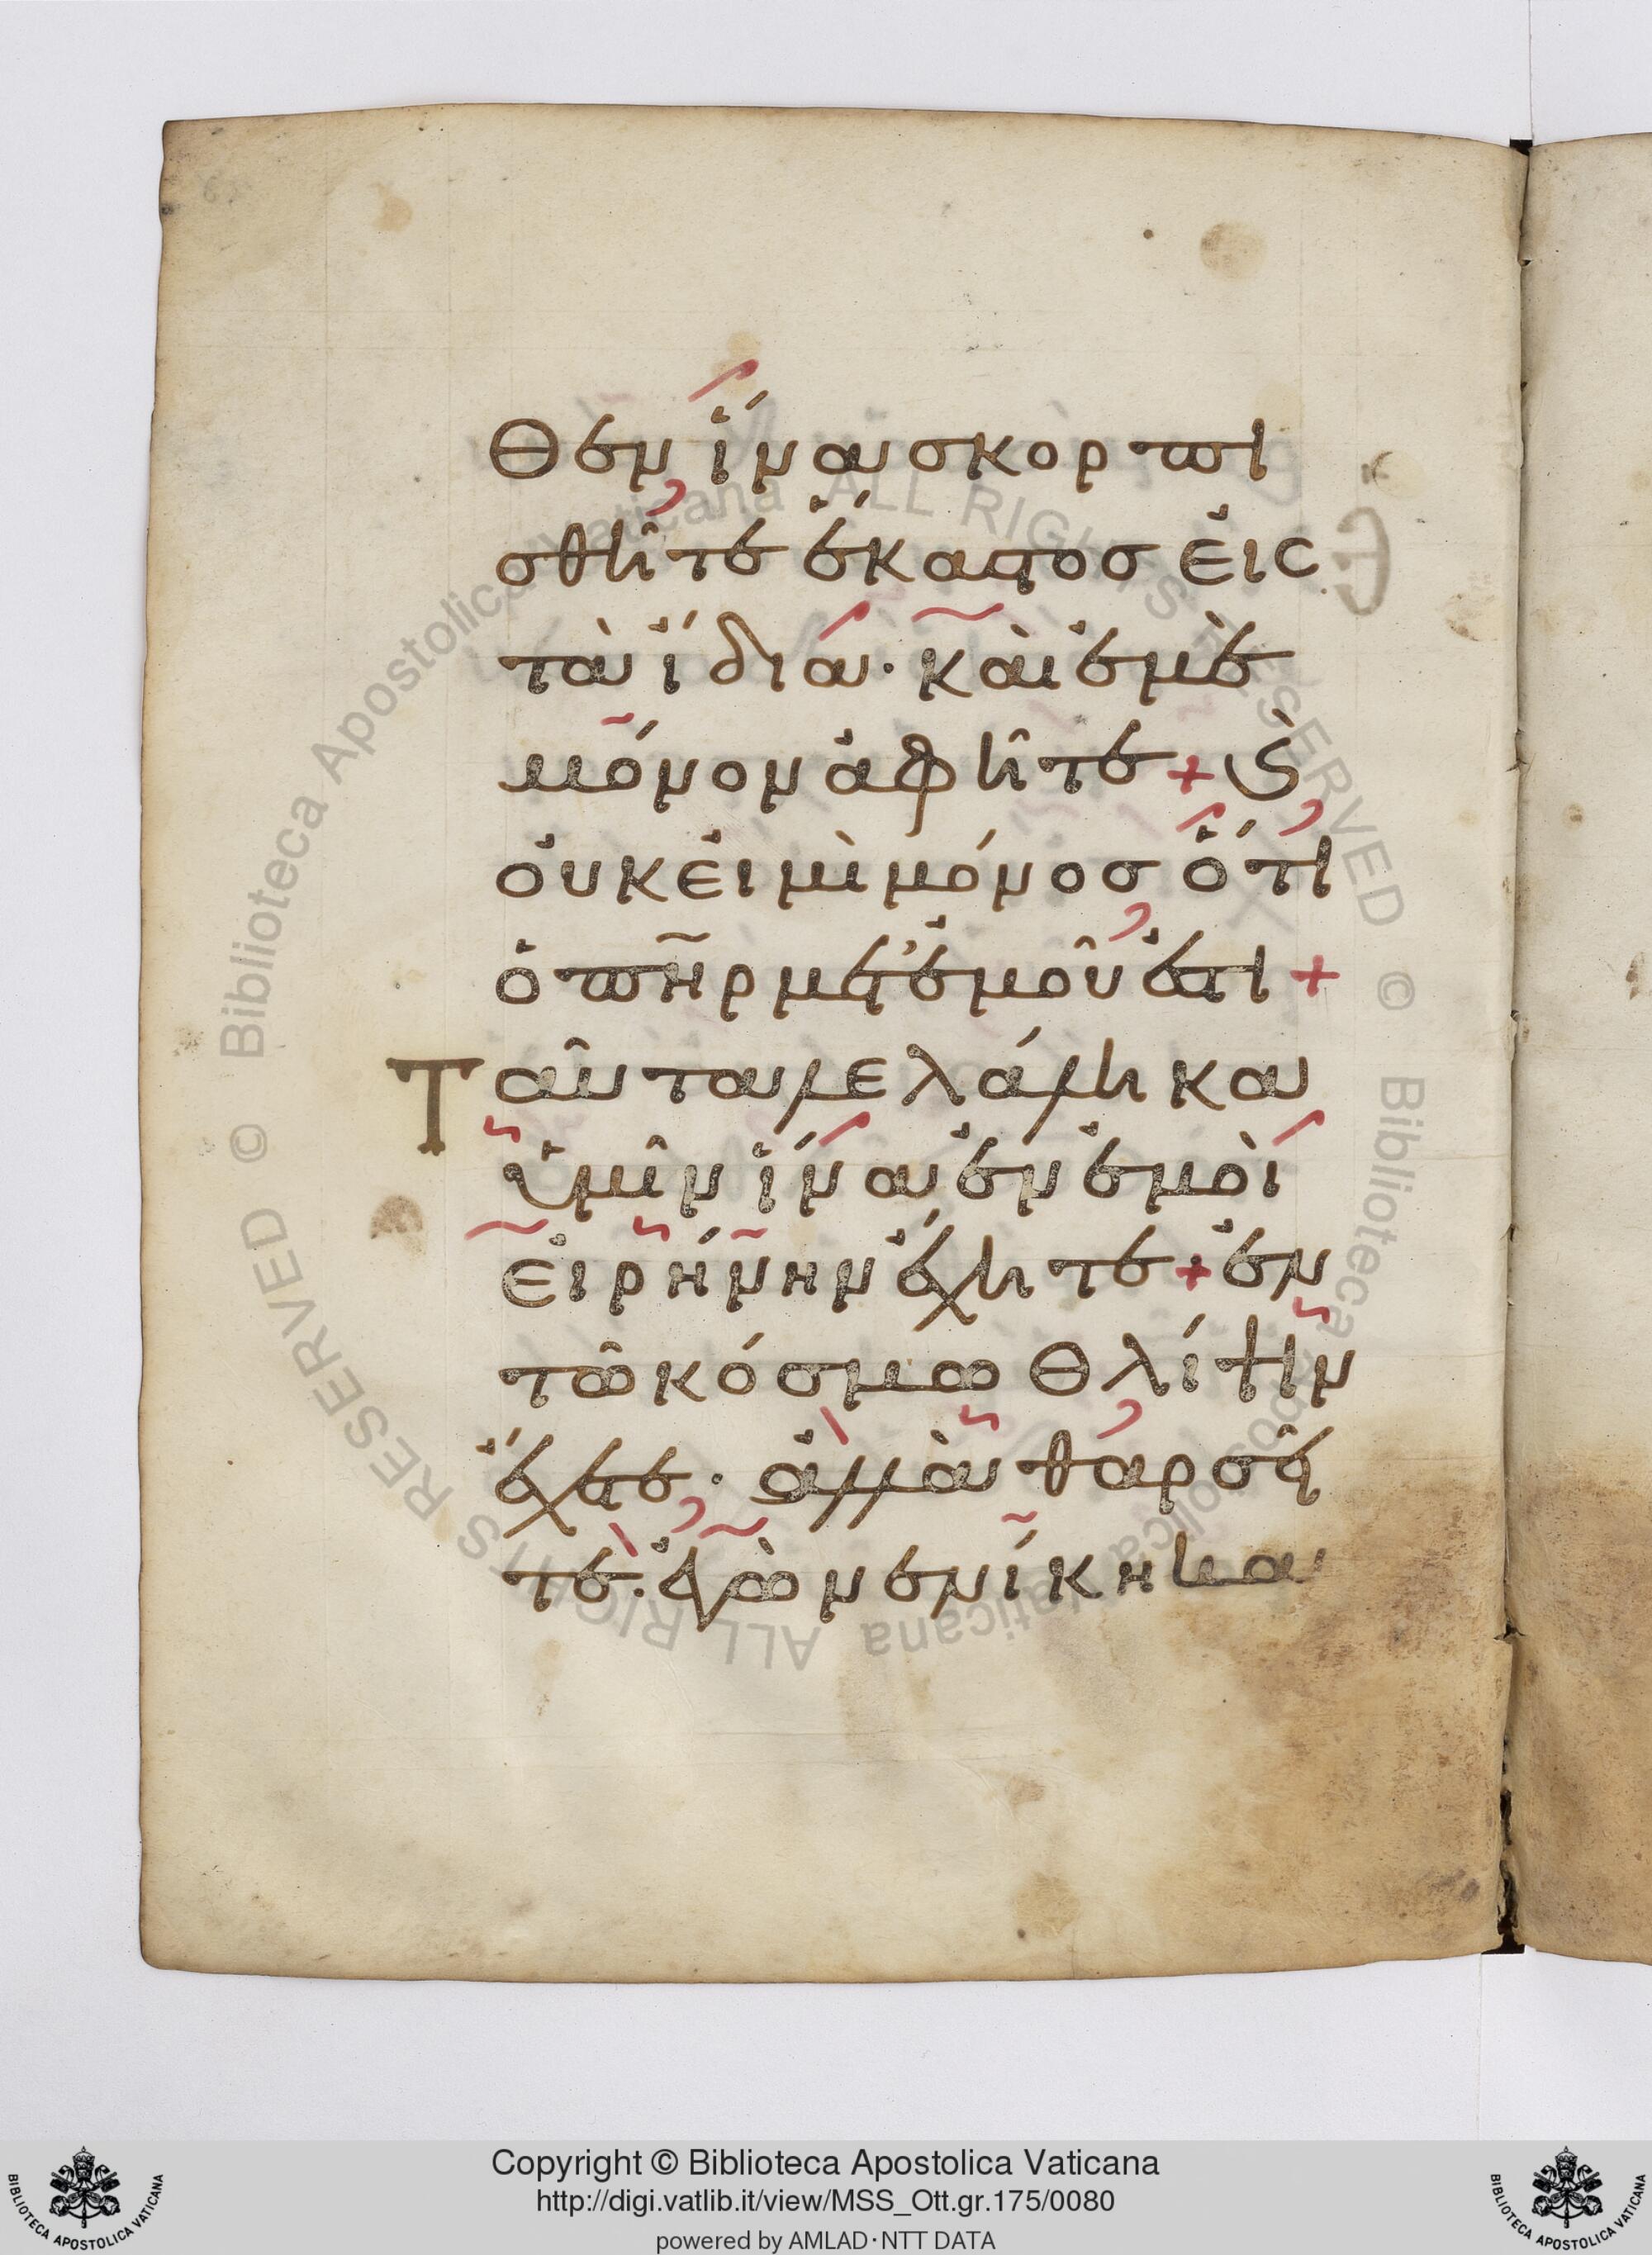 θεν ἵνα σκορπι
σθῆτε ἕκαστοσ εἰς
τὰ ἴδια· καὶ ἐμὲ
μόνον ἀφῆτε + ϗ
οὐκ εἰμὶ μόνοσ ὅτι
ὁ πῆρ μετ' ἐμοῦ ἐστι +
Ταῦτα λελάληκα
ὑμῖν ἵνα ἐν ἐμοὶ
εἰρήνην ἔχητε + ἐν
τῶ κόσμω θλίψιν
ἔχετε · ἀλλὰ θαρσεῖ
τε · ἐγὼ νενίκηκα
Copyright © Biblioteca Apostolica Vaticana
http://digi.vatlib.it/view/MSS_Ott.gr.175/0080
powered by AMLAD·NTT DATA
© Biblioteca Apostolica Vaticana ALL RIGHTS RESERVED
© Biblioteca Apostolica Vaticana ALL RIGHTS RESERVED
BIBLIOTECA APOSTOLICA VATICANA
BIBLIOTECA APOSTOLICA VATICANA